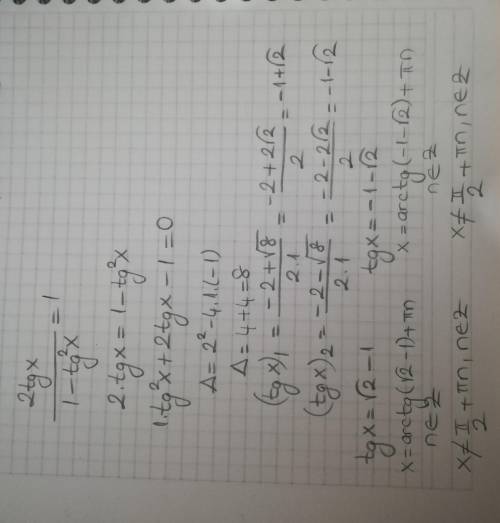 2tgx / 1-tg²x = 1
2·tgx = 1-tg²x
1·tg²x+2tgx-1=0
Δ=2²-4·1·(-1)
Δ=4+4=8
(tgx)₁ = -2+√8 / 2·1 = -2+2√2 / 2 = -1+√2
(tgx)₂ = -2-√8 / 2·1 = -2-2√2 / 2 = -1-√2
tgx=√2-1 tgx=-1-√2
x=arctg(√2-1)+πn x=arctg(-1-√2)+πn
n∈Z n∈Z
x≠π/2+πn, n∈Z x≠π/2+πn, n∈Z